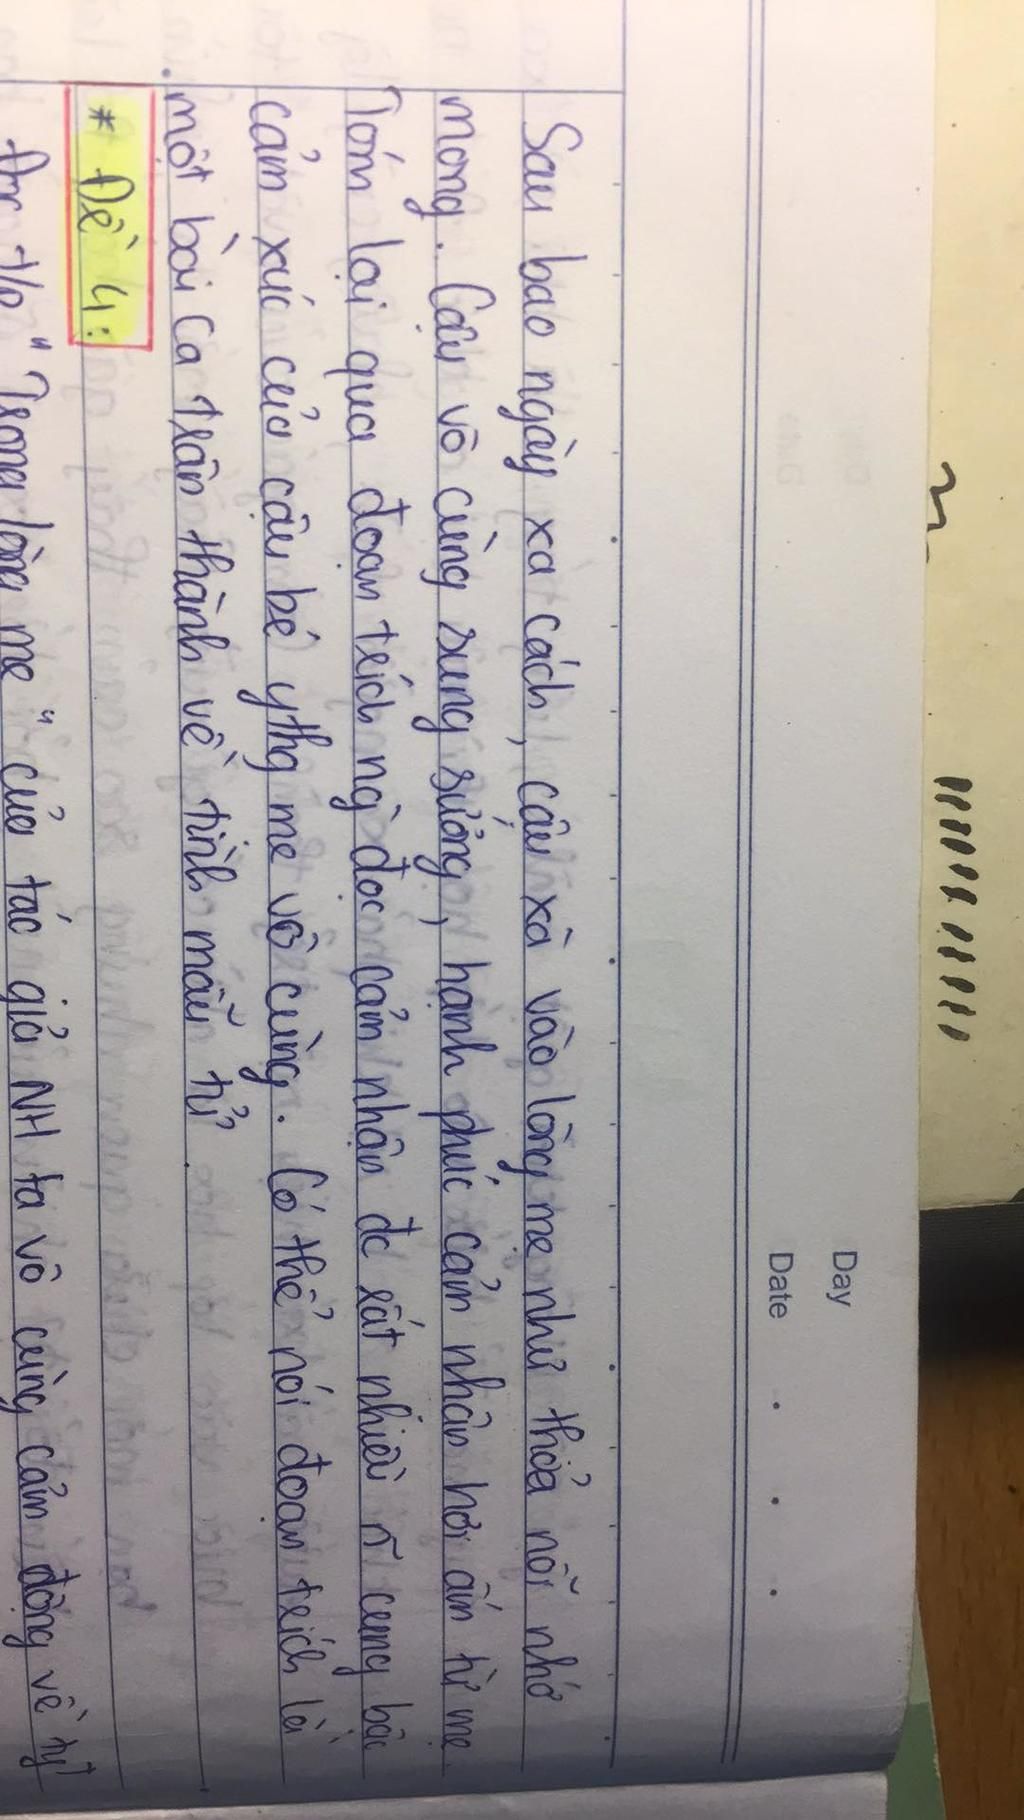 Day
Date
Sau bao ngày xa cách, cậu xà vào lòng mẹ như thỏa nỗi nhớ
mong. Cậu vô cùng sung sướng, hạnh phúc cảm nhận hơi ấm từ mẹ.
Tóm lại qua đoạn trích ng` đọc cảm nhận đc rất nhiều cung bậc
cảm xúc của cậu bé ythg mẹ vô cùng. Có thể nói đoạn trích là
một bài ca chân thành về tình mẫu tử.
* Đề 4:
"Trong lòng mẹ" của tác giả NH ta vô cùng cảm động về